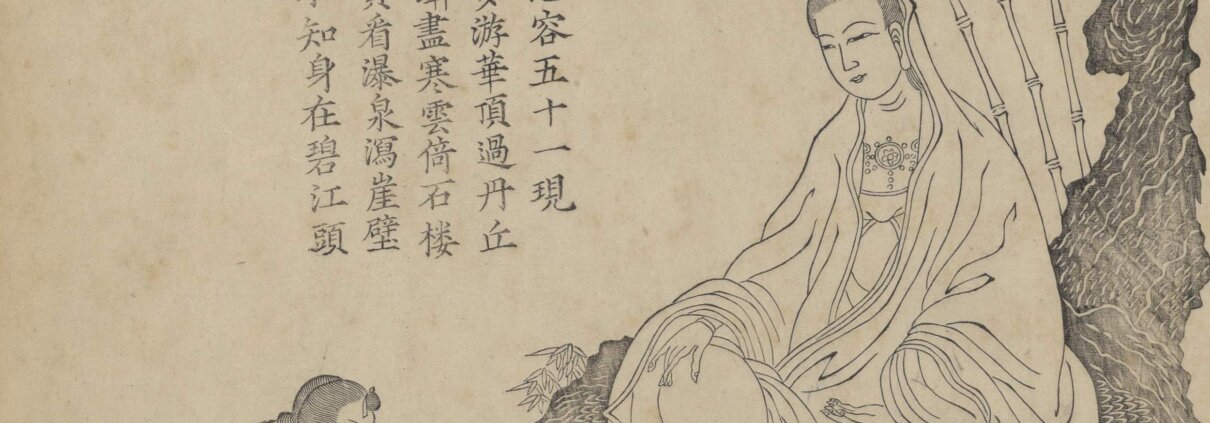 容五十一現
游華頂過丹丘
盡寒雲倚石楼
看瀑泉瀉崖壁
知身在碧江頭